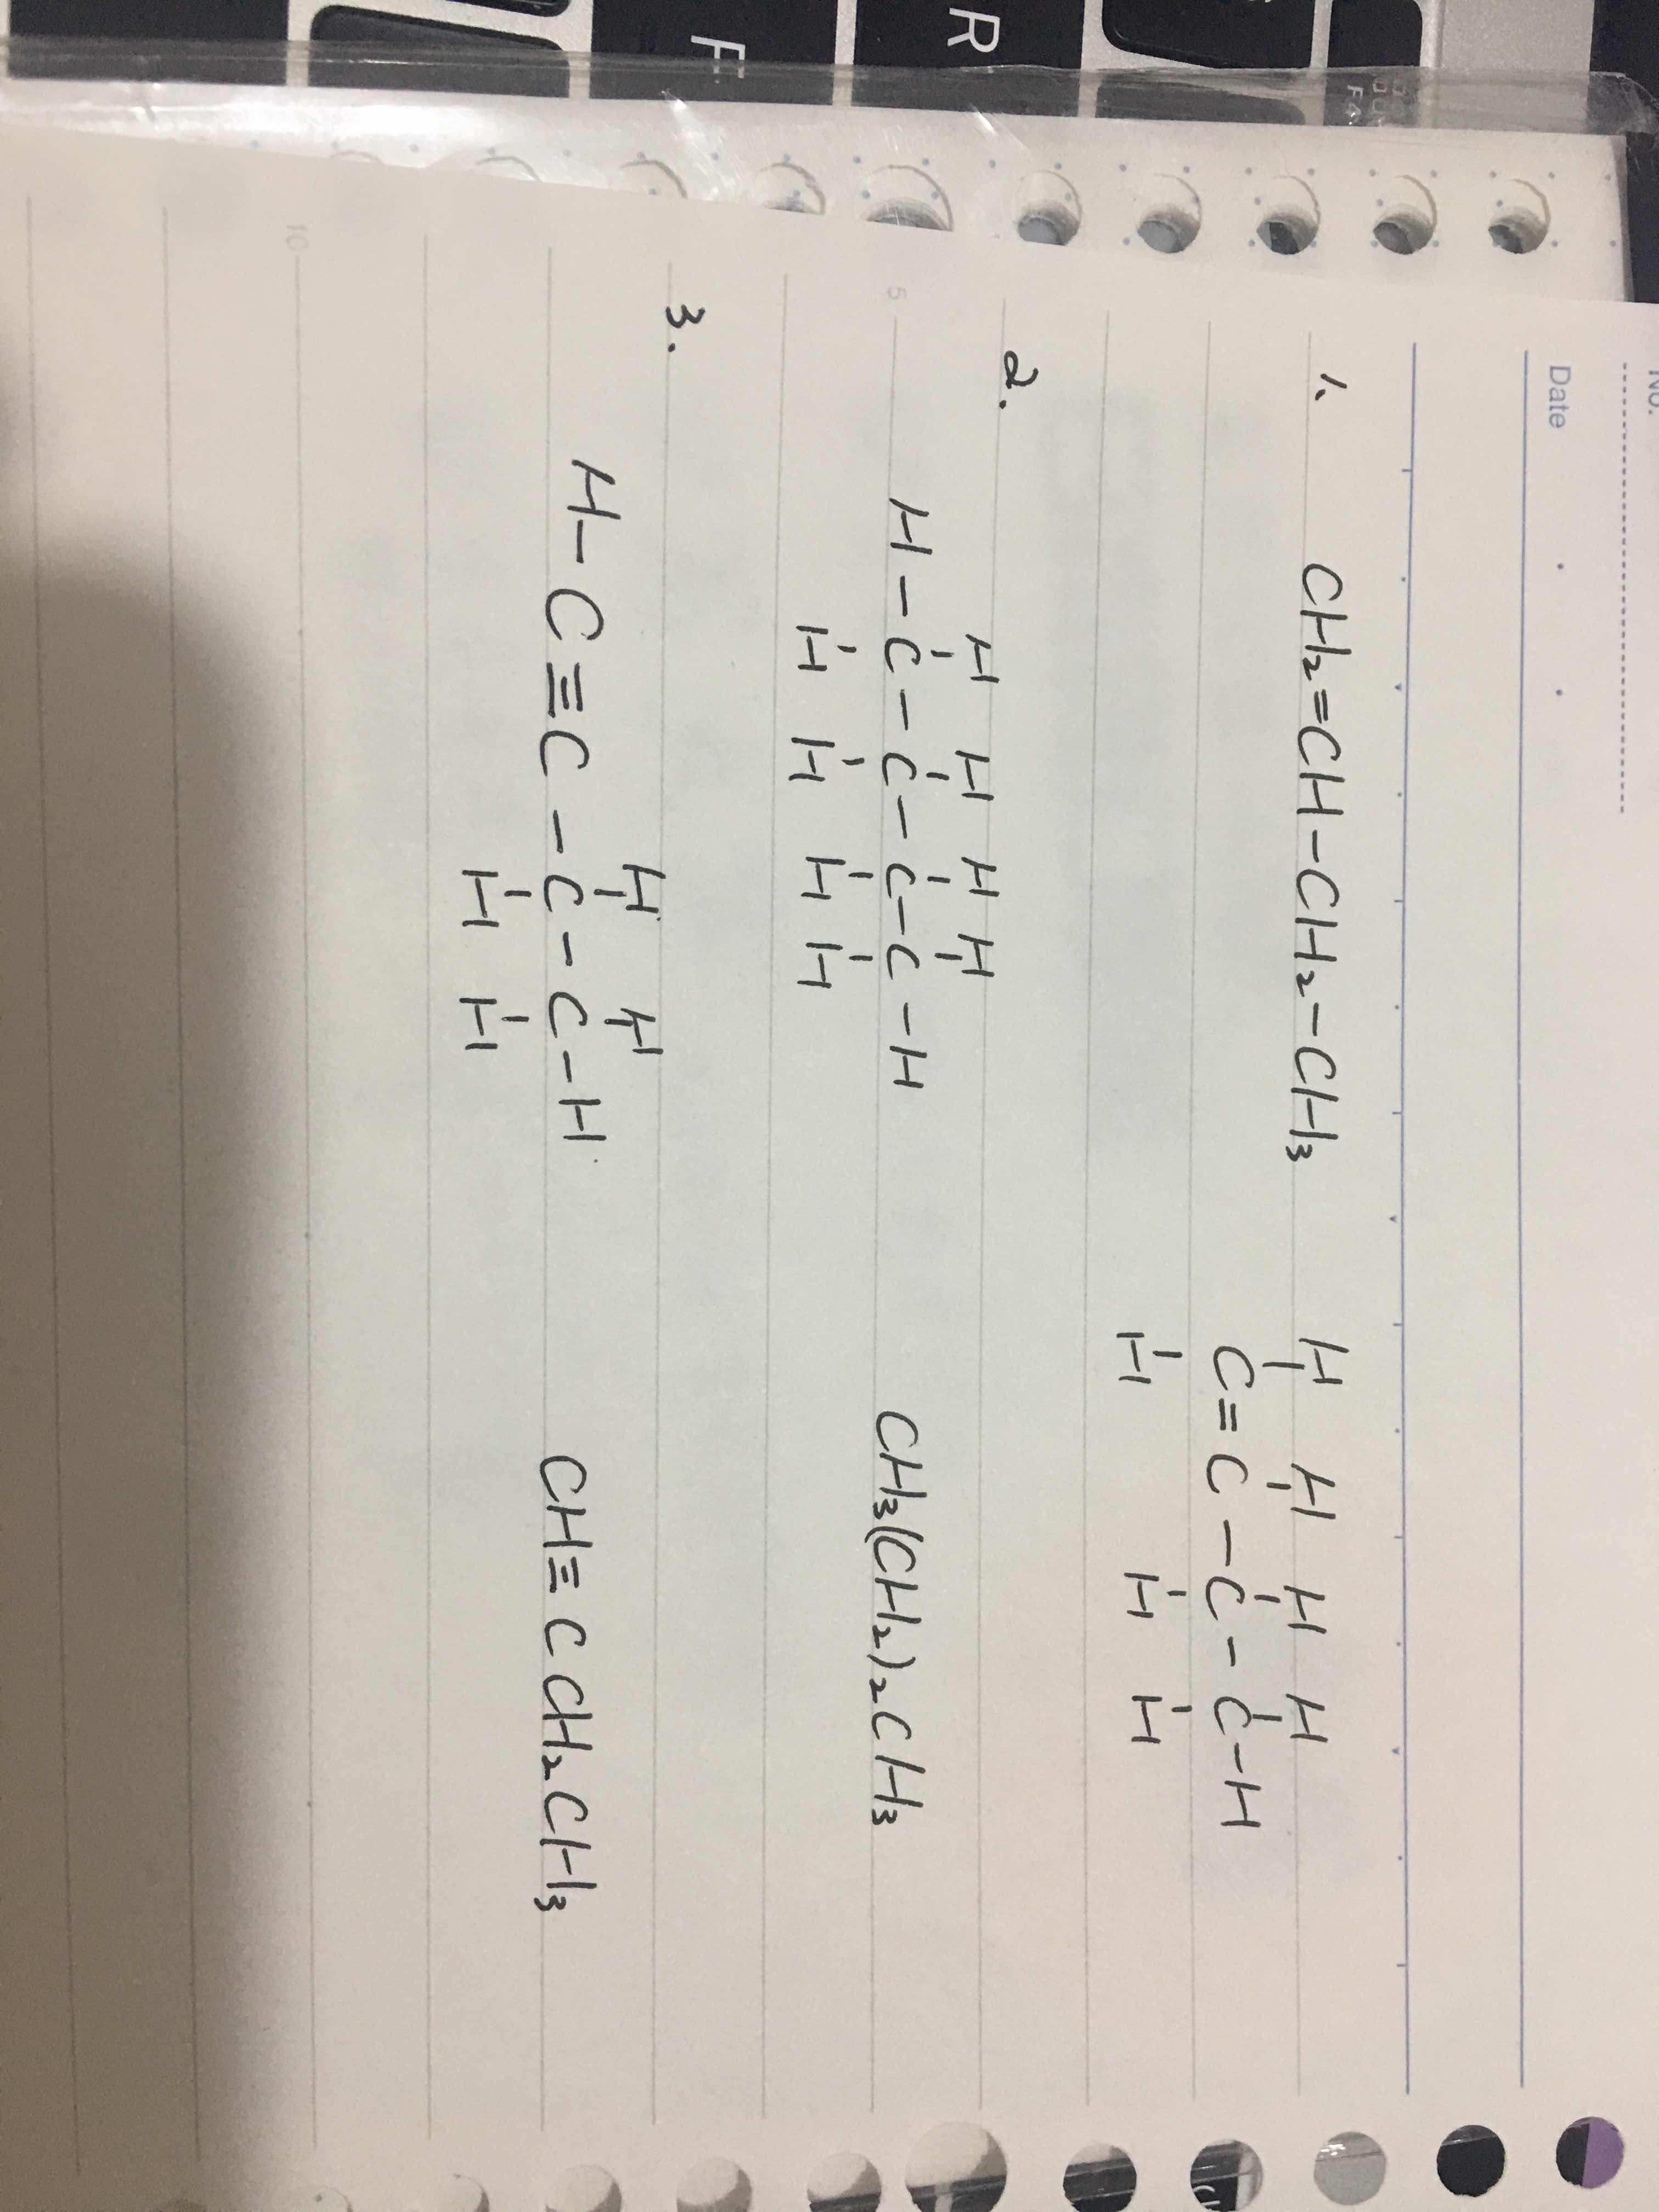 No.
Date
1. CH₂=CH-CH₂-CH₃
H H H H
C=C-C-C-H
H H H
2.
H H H H
H-C-C-C-C-H CH₃(CH₂)₂CH₃
H H H H
3.
H H
H-C≡C-C-C-H CH≡CCH₂CH₃
H H
5
10
R
F
F4